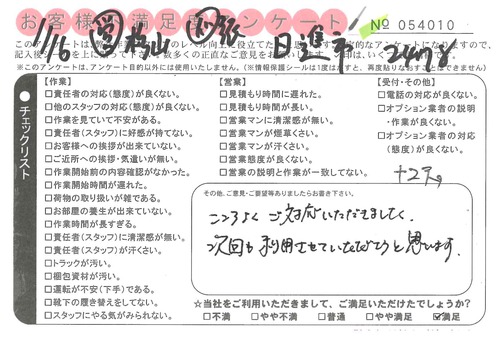 お客様不満足度アンケート
№ 054010
11/6 日進市
※このアンケートは、アンケート目的以外には使用いたしません。
チェックリスト
【作業】
□責任者の対応(態度)が良くない。
□他のスタッフの対応(態度)が良くない。
□作業を見ていて不安がある。
□責任者(スタッフ)に好感が持てない。
□お客様への挨拶が出来ていない。
□ご近所への挨拶・気遣いが無い。
□作業開始前の内容確認がなかった。
□作業開始時間が遅れた。
□荷物の取り扱いが雑である。
□お部屋の養生が出来ていない。
□作業時間が長すぎる。
□責任者(スタッフ)に清潔感が無い。
□責任者(スタッフ)が汗くさい。
□トラックが汚い。
□梱包資材が汚い。
□運転が不安(下手)である。
□靴下の履き替えをしてない。
□スタッフにやる気がみられない。
【営業】
□見積もり時間に遅れた。
□見積もり時間が長い。
□営業マンに清潔感が無い。
□営業マンが煙草くさい。
□営業マンが汗くさい。
□営業態度が良くない。
□営業の説明と作業が一致してない。
【受付・その他】
□電話の対応が良くない。
□オプション業者の説明
・作業が良くない。
□オプション業者の対応
(態度)が良くない。
その他、ご意見・ご要望等ありましたらお書き下さい。
こころよくご対応いただきまして、
次回も利用させていただこうと思います。
☆当社をご利用いただきまして、ご満足いただけたでしょうか?
□不満 □やや不満 □普通 □やや満足 ☑満足